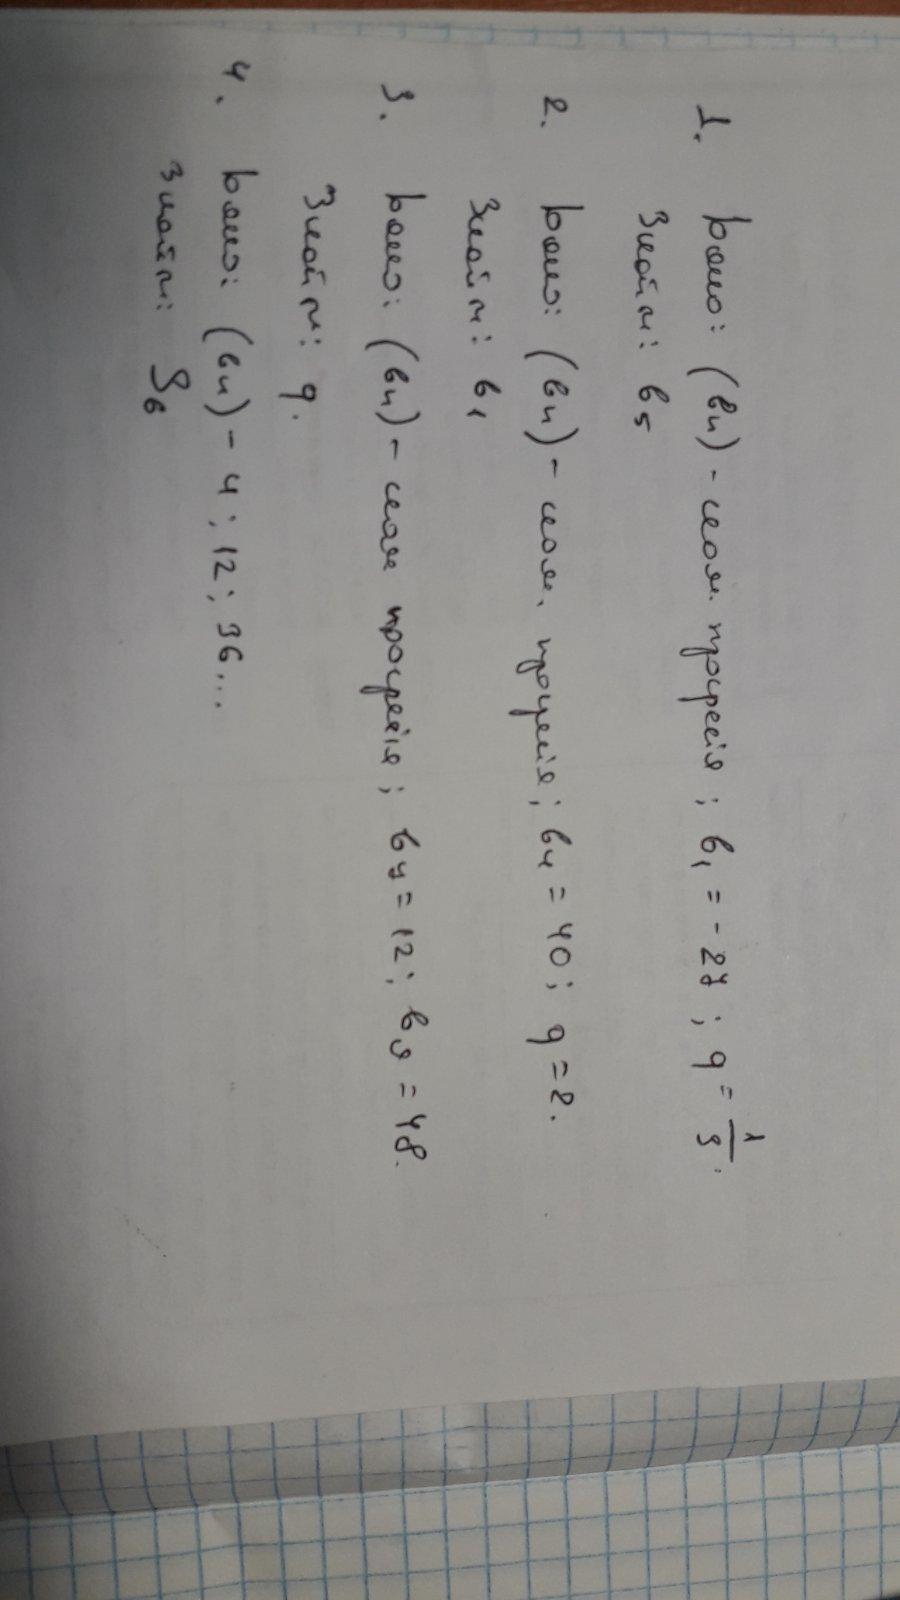 1. Дано: (bn) - геом. прогресія; b₁ = -27; q = 1/3.
Знайти: b₅
2. Дано: (bn) - геом. прогресія; b₄ = 40; q = 2.
Знайти: b₁
3. Дано: (bn) - геом прогресія; b₇ = 12; b₉ = 48.
Знайти: q.
4. Дано: (bn) - 4; 12; 36...
Знайти: S₆